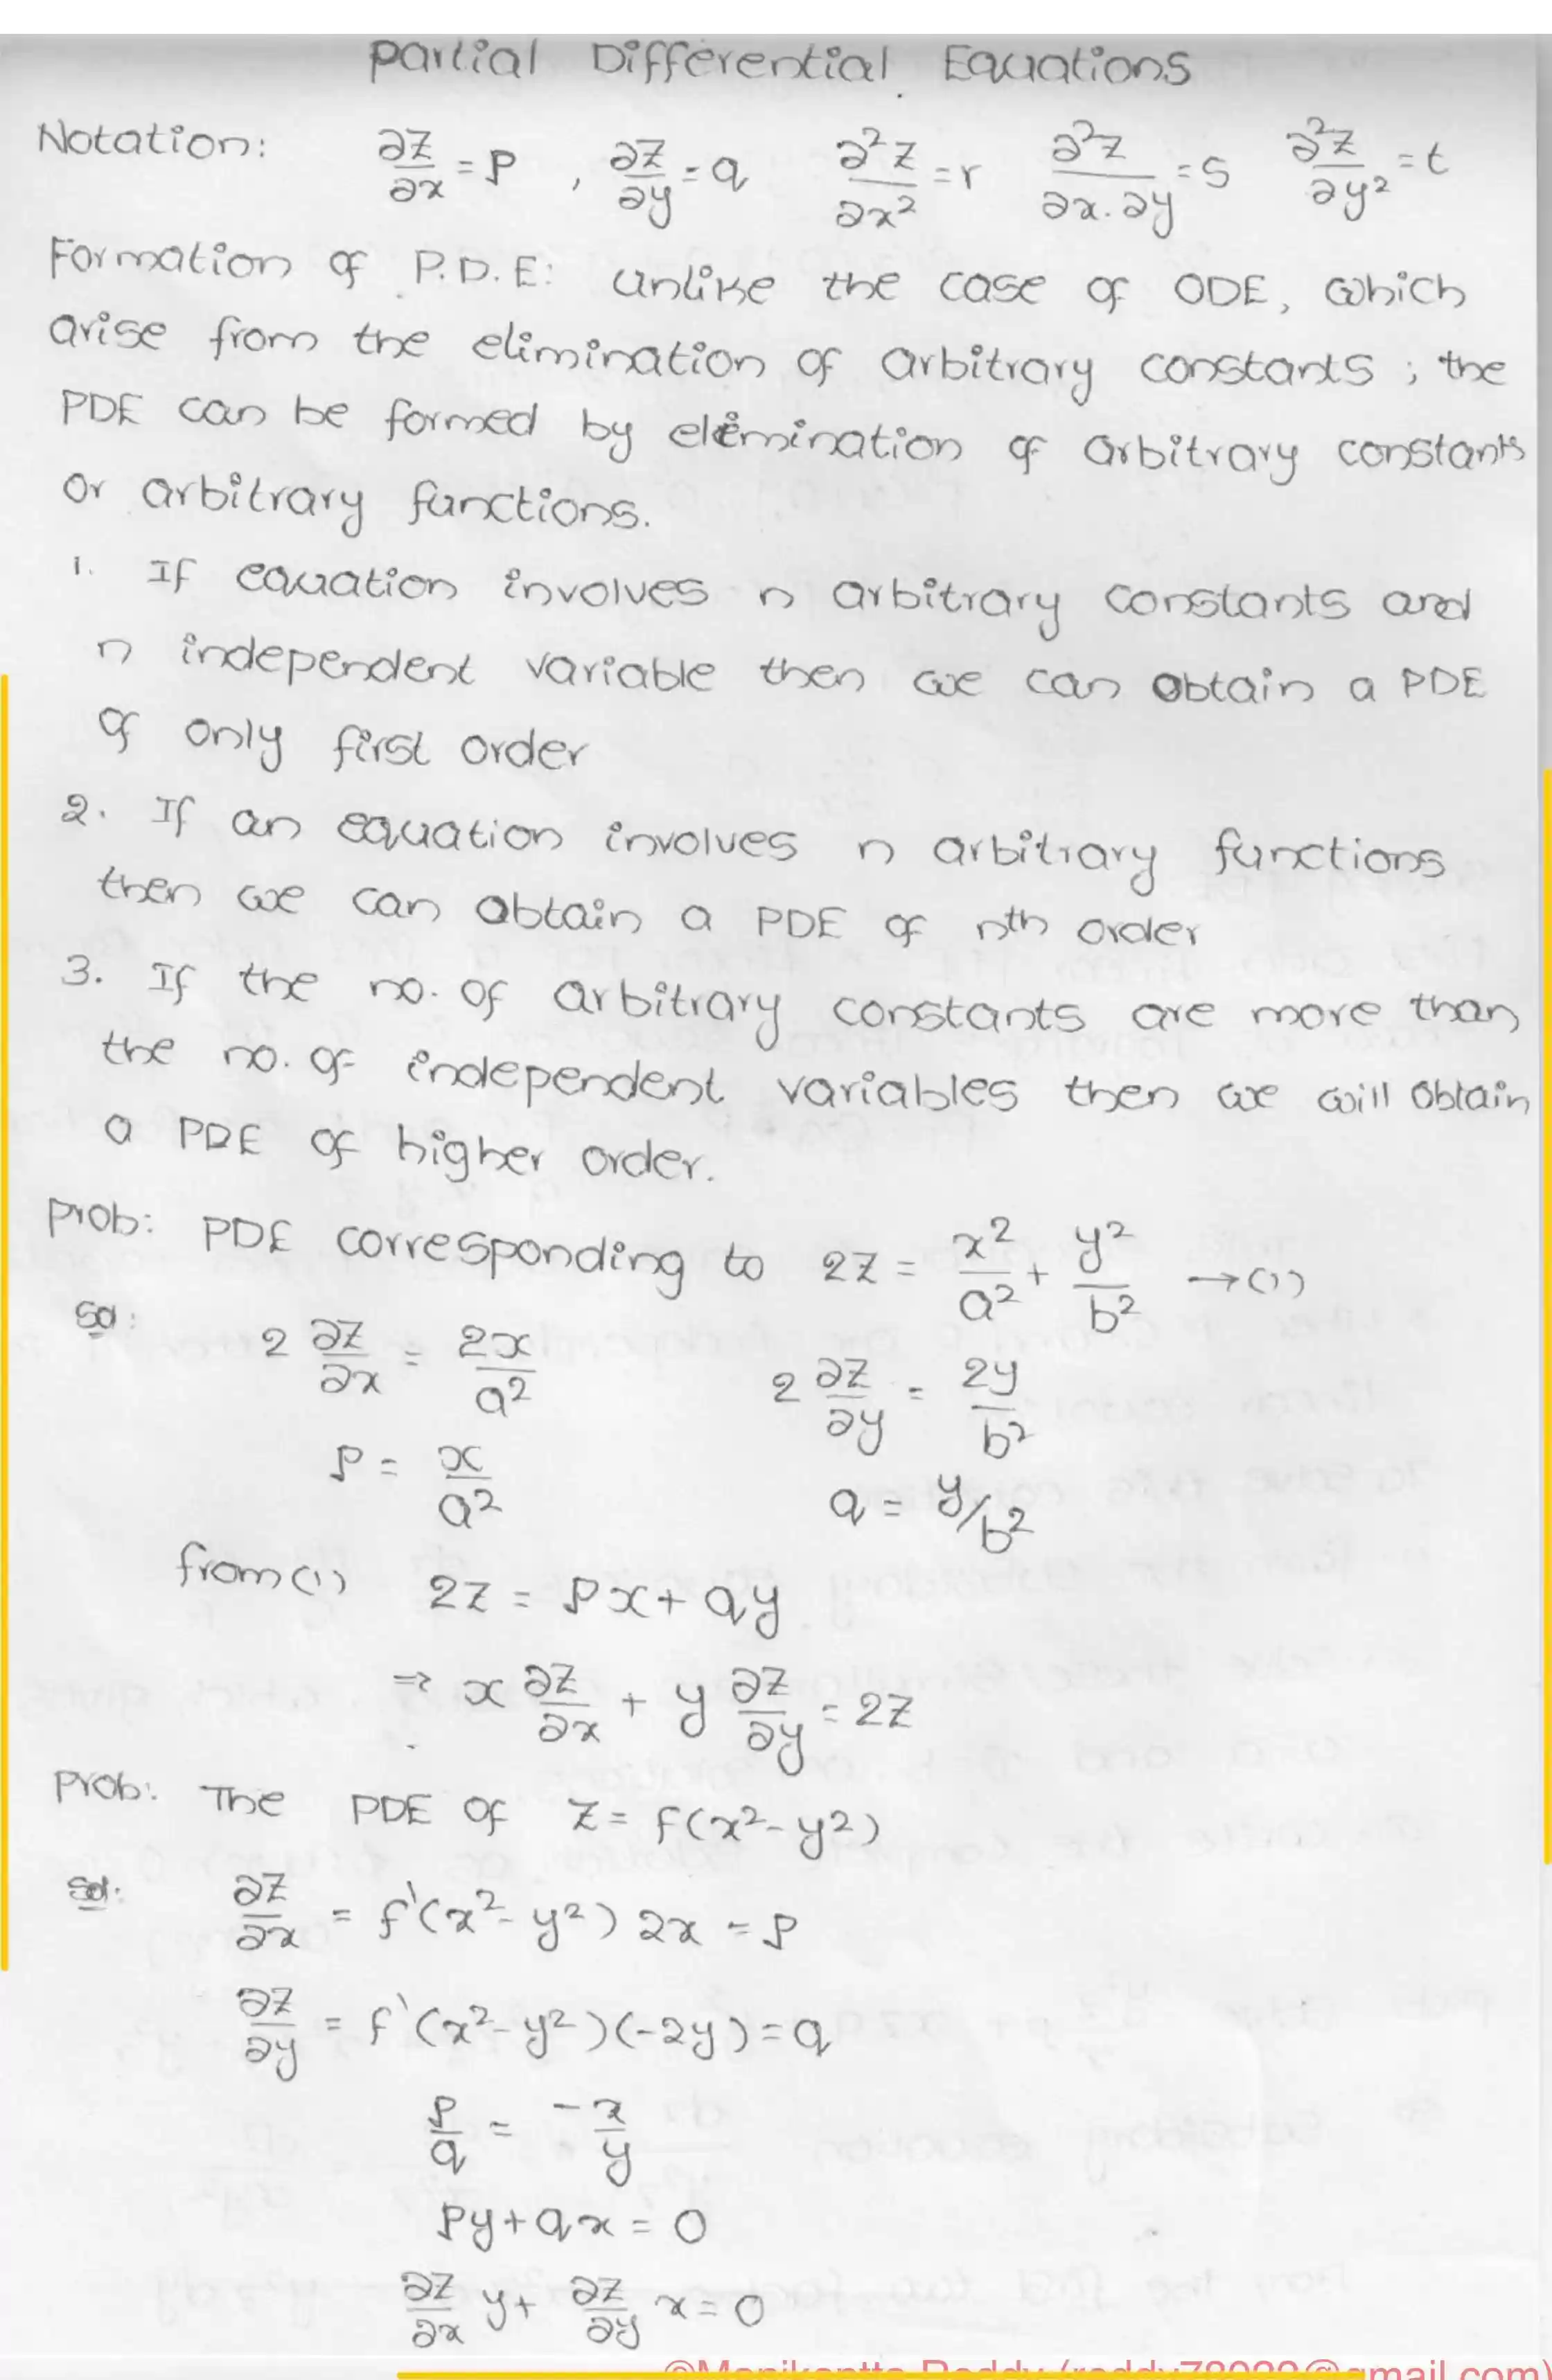 Partial Differential Equations
Notation: ∂z/∂x = p , ∂z/∂y = q ∂²z/∂x² = r ∂²z/∂x.∂y = s ∂²z/∂y² = t
Formation of P.D.E: Unlike the case of ODE, which
arise from the elimination of arbitrary constants ; the
PDE can be formed by elimination of arbitrary constants
or arbitrary functions.
1. If equation involves n arbitrary constants and
n independent variable then we can obtain a PDE
of only first order
2. If an equation involves n arbitrary functions
then we can obtain a PDE of nth order
3. If the no. of arbitrary constants are more than
the no. of independent variables then we will obtain
a PDE of higher order.
Prob: PDE corresponding to 2z = x²/a² + y²/b² → (1)
Sol: 2 ∂z/∂x = 2x/a² 2 ∂z/∂y = 2y/b²
p = x/a² q = y/b²
from (1) 2z = px + qy
⇒ x ∂z/∂x + y ∂z/∂y = 2z
Prob: The PDE of z = f(x²-y²)
Sol: ∂z/∂x = f'(x²-y²) 2x = p
∂z/∂y = f'(x²-y²)(-2y) = q
p/q = -x/y
py + qx = 0
∂z/∂x y + ∂z/∂y x = 0